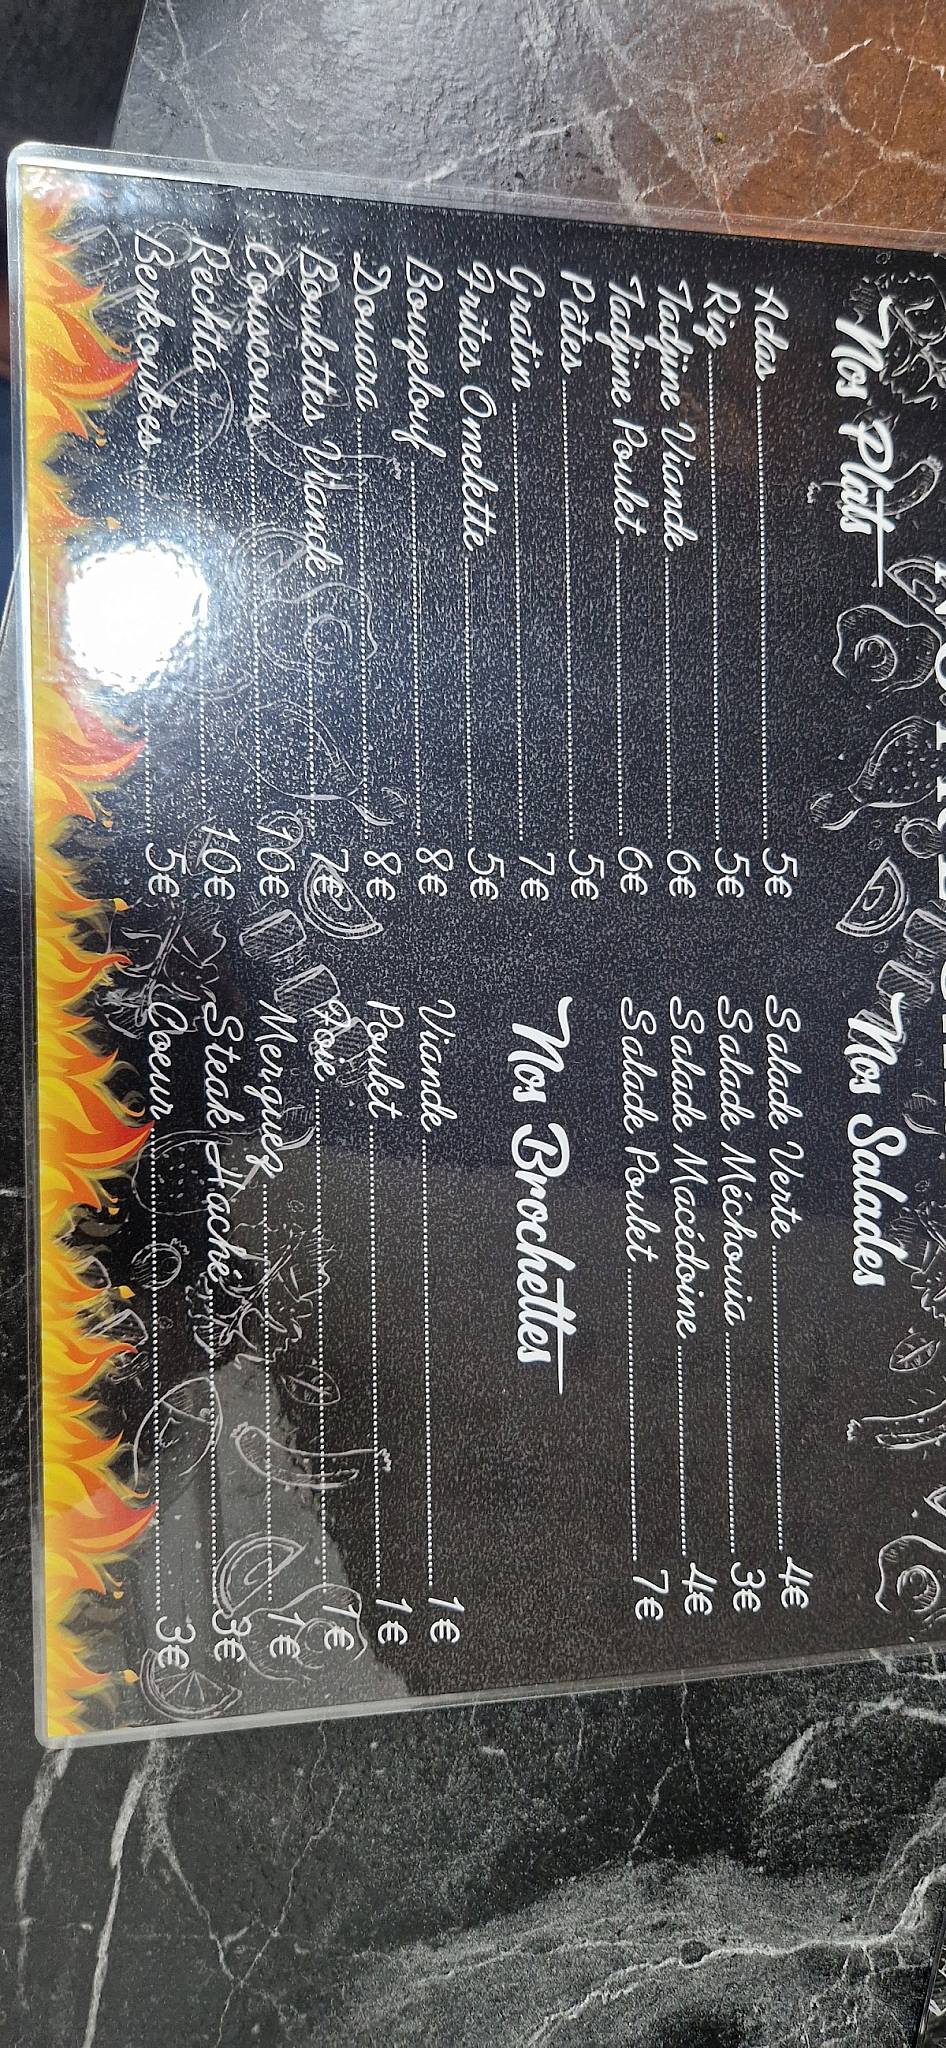 Nos Plats
Adas 5€
Riz 5€
Tadjine Viande 6€
Tadjine Poulet 6€
Pâtes 5€
Gratin 7€
Frites Omelette 5€
Bouzelouf 8€
Douara 8€
Boulettes Viande 7€
Couscous 10€
Rechta 10€
Berkoukes 5€
Nos Salades
Salade Verte 4€
Salade Méchouia 3€
Salade Macédoine 4€
Salade Poulet 7€
Nos Brochettes
Viande 1€
Poulet 1€
Foie 1€
Merguez 1€
Steak Haché 3€
Coeur 3€